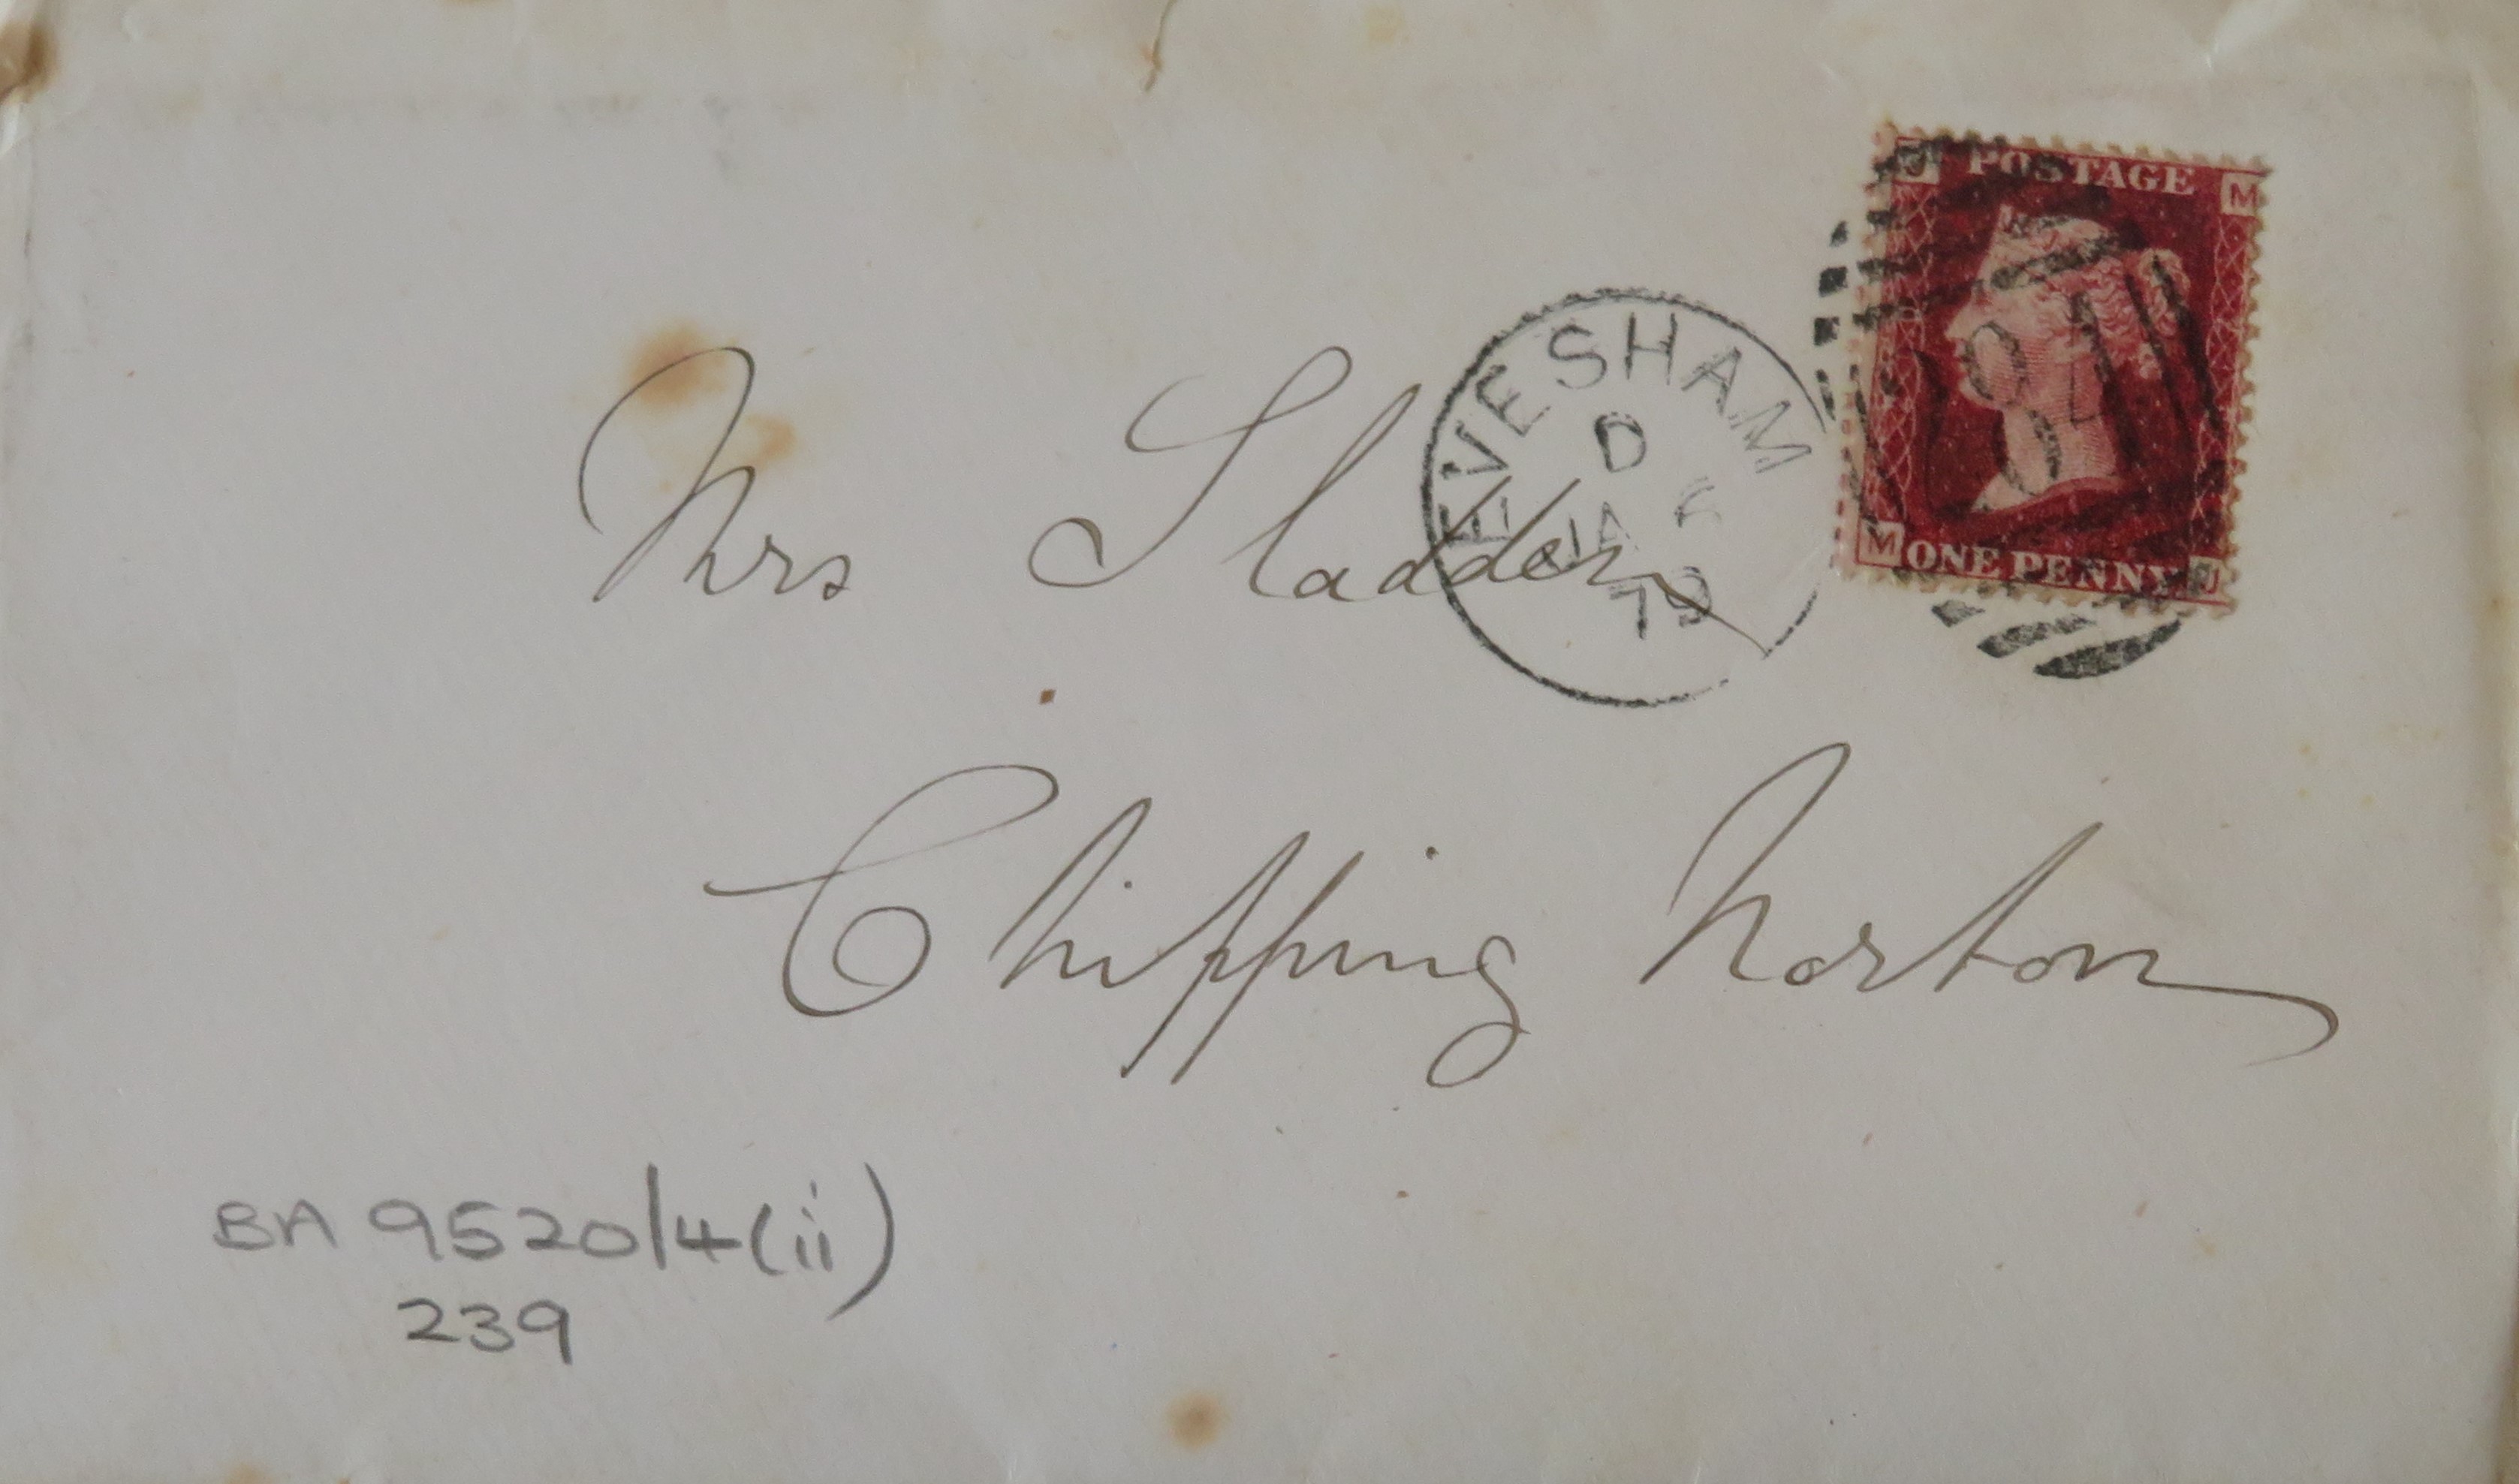 J POSTAGE M
M ONE PENNY J
EVESHAM
D
JA 6
79
Mrs Sladden
Chipping Norton
BA 9520/4(ii)
239